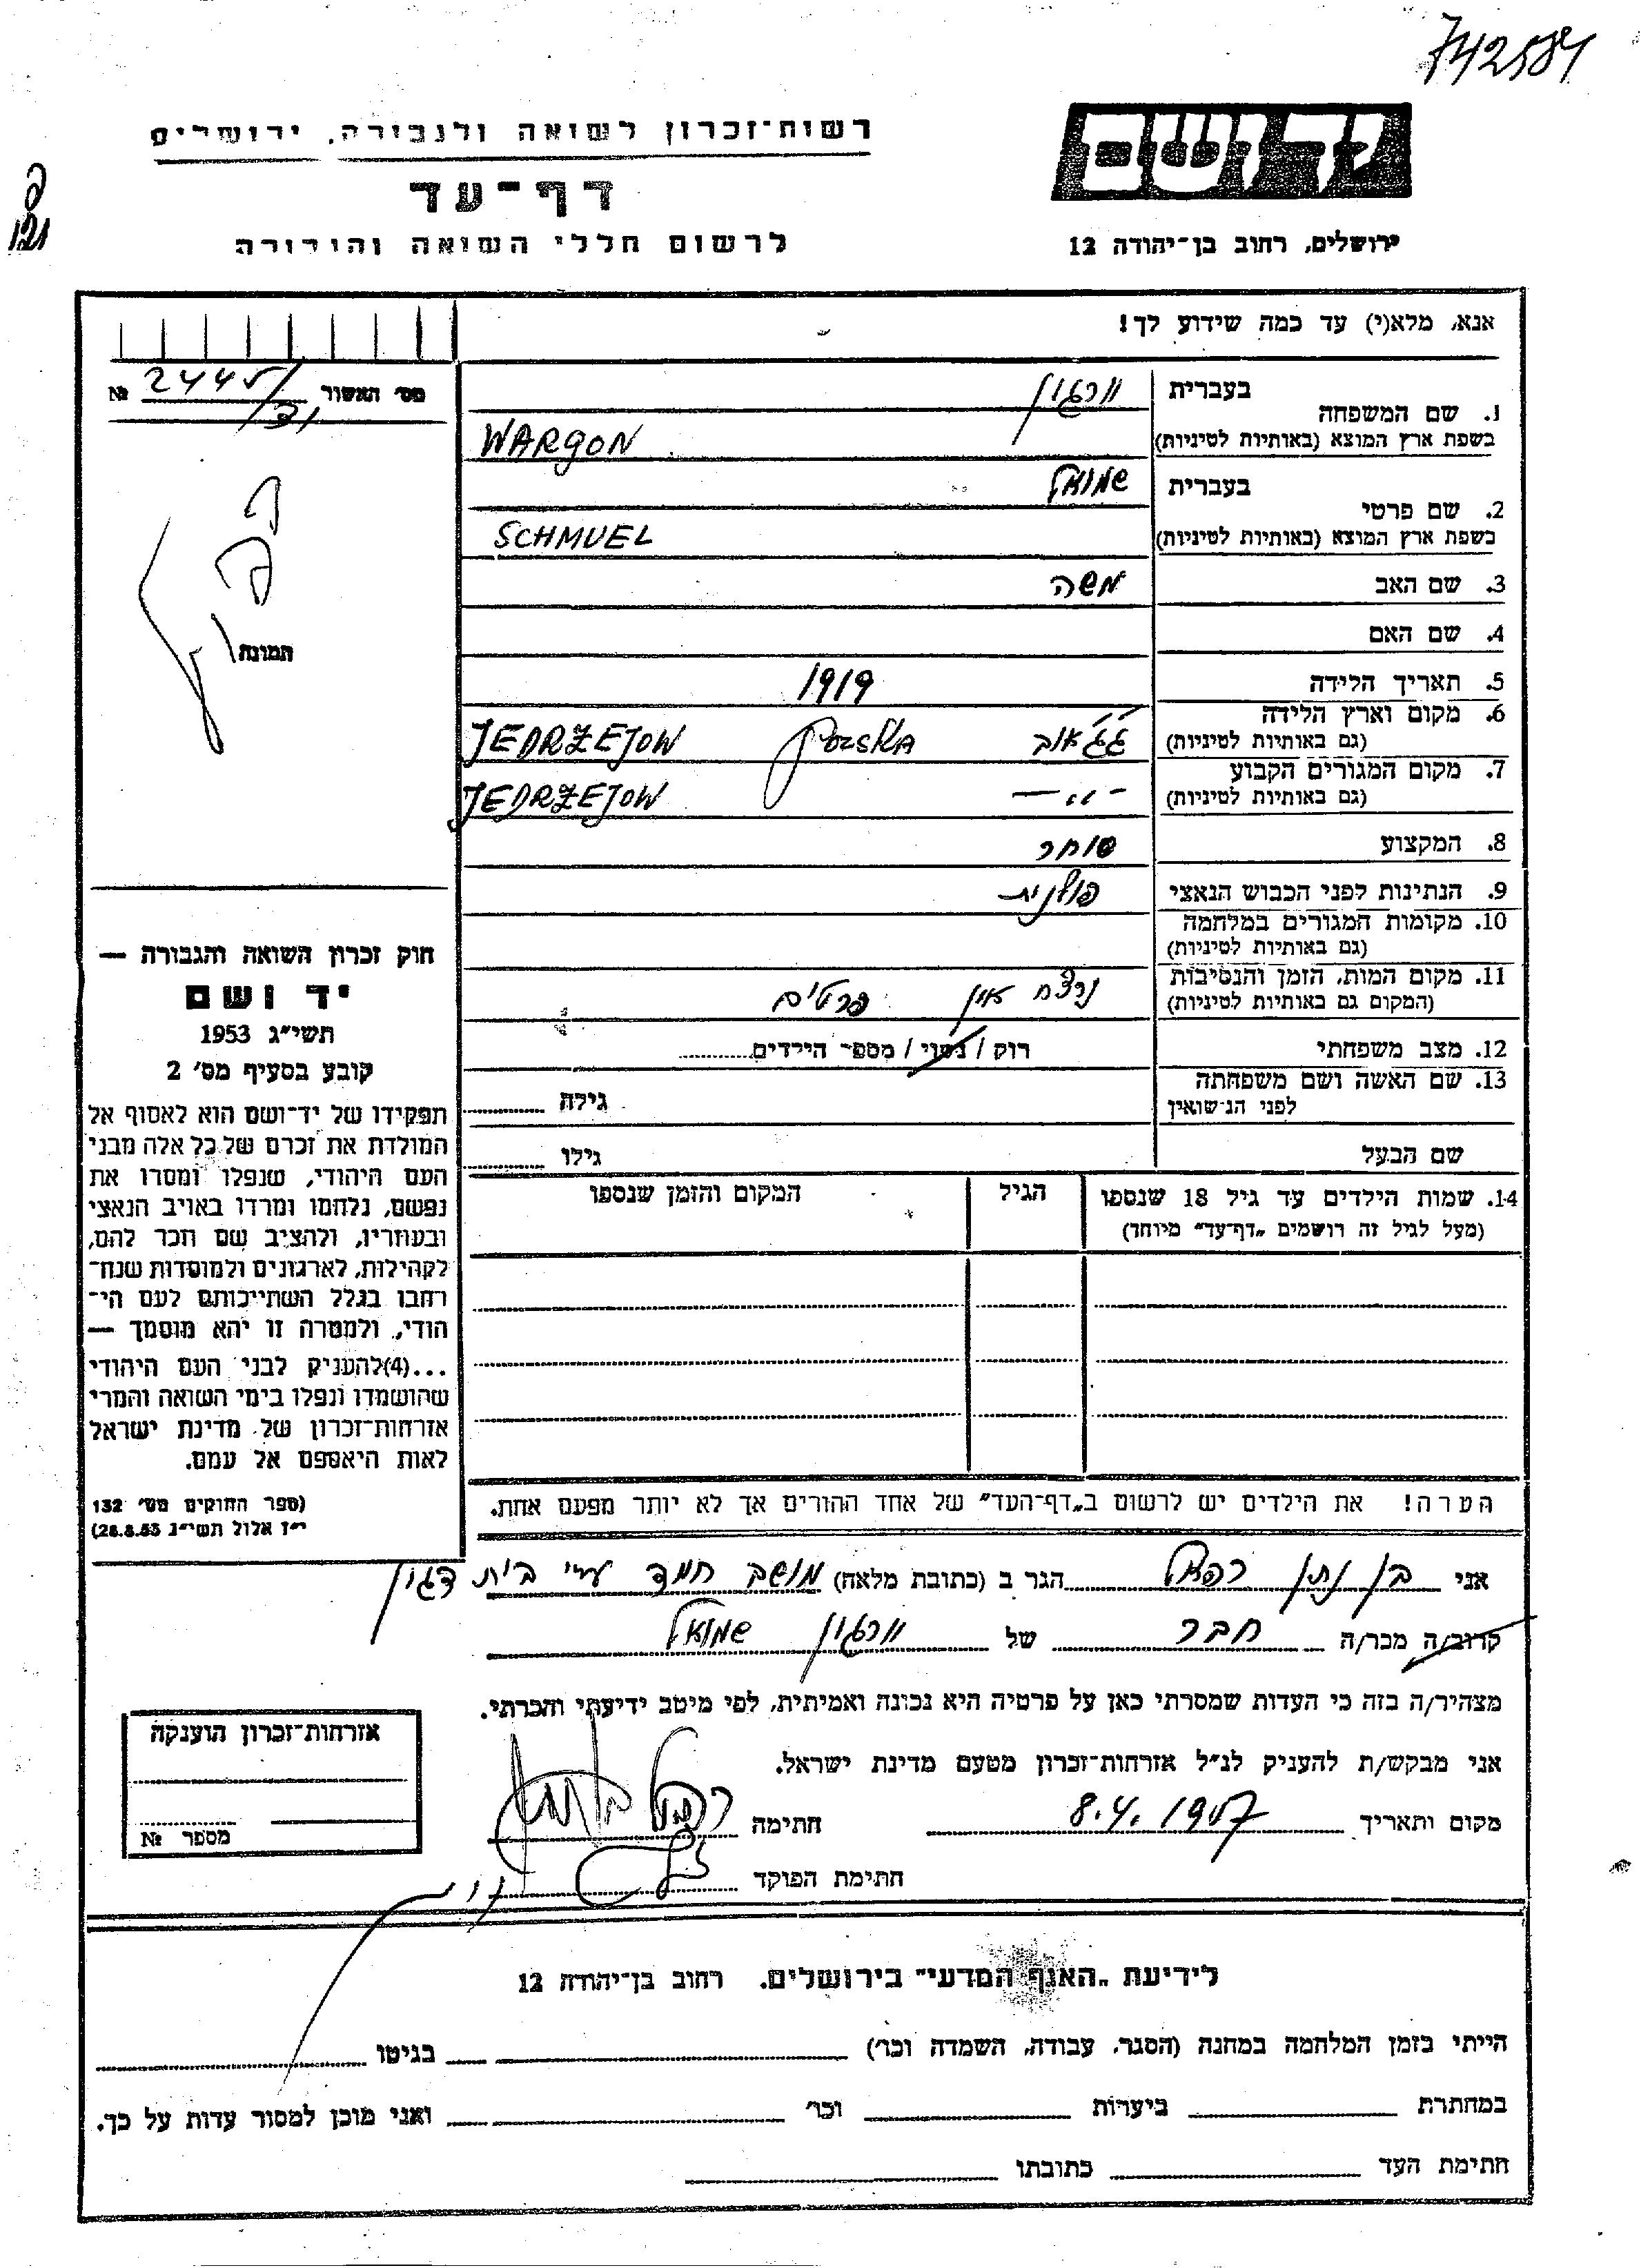 742584
יד ושם
רשות־זכרון לשואה ולגבורה, ירושלים
דף־עד
לרשום חללי השואה והגבורה
ירושלים, רחוב בן־יהודה 12
אנא, מלא(י) עד כמה שידוע לך!
מס׳ האשור 2445/31 №
תמונה
1. שם המשפחה
בעברית ורגון
בשפת ארץ המוצא (באותיות לטיניות) WARGON
2. שם פרטי
בעברית שמואל
בשפת ארץ המוצא (באותיות לטיניות) SCHMUEL
3. שם האב משה
4. שם האם
5. תאריך הלידה 1919
6. מקום וארץ הלידה
(גם באותיות לטיניות) POLSKA JEDRZEJOW
7. מקום המגורים הקבוע
(גם באותיות לטיניות) — „ — JEDRZEJOW
8. המקצוע סוחר
9. הנתינות לפני הכבוש הנאצי פולנית
10. מקומות המגורים במלחמה
(גם באותיות לטיניות)
11. מקום המות, הזמן והנסיבות
(המקום גם באותיות לטיניות) נרצח אין פרטים
12. מצב משפחתי רוק / נשוי / מספר הילדים
13. שם האשה ושם משפחתה
לפני הנישואין גילה
שם הבעל גילו
14. שמות הילדים עד גיל 18 שנספו הגיל המקום והזמן שנספו
(מעל לגיל זה רושמים „דף־עד” מיוחד)
חוק זכרון השואה והגבורה —
יד ושם
תשי״ג 1953
קובע בסעיף מס׳ 2
תפקידו של יד־ושם הוא לאסוף אל
המולדת את זכרם של כל אלה מבני
העם היהודי, שנפלו ומסרו את
נפשם, נלחמו ומרדו באויב הנאצי
ובעוזריו, ולהציב שם וזכר להם,
לקהילות, לארגונים ולמוסדות שנח־
רבו בגלל השתייכותם לעם הי־
הודי, ולמטרה זו יהא מוסמך —
...(4)להעניק לבני העם היהודי
שהושמדו ונפלו בימי השואה והמרי
אזרחות־זכרון של מדינת ישראל
לאות היאספם אל עמם.
(ספר החוקים מס׳ 132
י״ז אלול תשי״ג 28.8.53)
הערה! את הילדים יש לרשום ב„דף־העד” של אחד ההורים אך לא יותר מפעם אחת.
אני בן נתן רפאל הגר ב (כתובת מלאה) מושב חמד ע״י בית דגון
קרוב/ה מכר/ה חבר של ורגון שמואל
מצהיר/ה בזה כי העדות שמסרתי כאן על פרטיה היא נכונה ואמיתית, לפי מיטב ידיעתי והכרתי.
אני מבקש/ת להעניק לנ״ל אזרחות־זכרון מטעם מדינת ישראל.
מקום ותאריך 8.4.1957 חתימה רפאל בן נתן
חתימת הפוקד
אזרחות־זכרון הוענקה
מספר №
לידיעת „האגף המדעי” בירושלים. רחוב בן־יהודה 12
הייתי בזמן המלחמה במחנה (הסגר, עבודה, השמדה וכו׳) בגיטו
במחתרת ביערות וכו׳ ואני מוכן למסור עדות על כך.
חתימת העד כתובתו